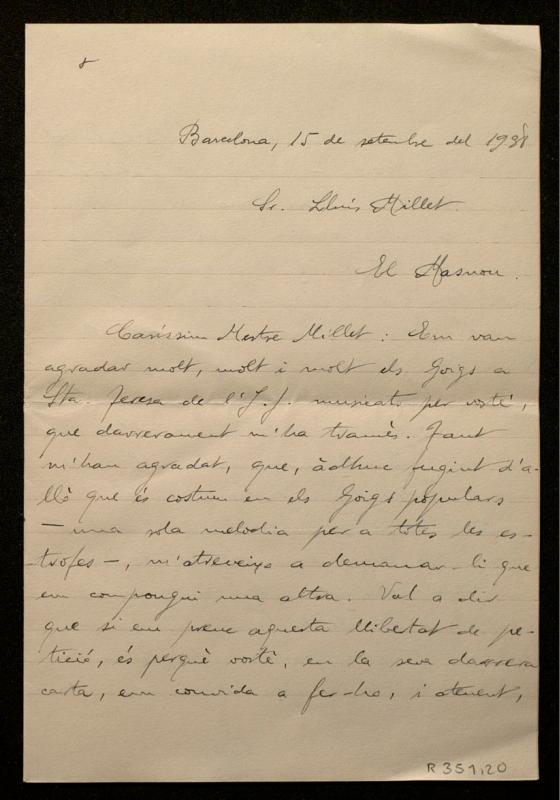 Barcelona, 15 de setembre del 1938
Sr. Lluís Millet.
El Masnou.
Caríssim Mestre Millet: Em van
agradar molt, molt i molt els Goigs a
Sta. Teresa de l'I. J. musicats per vostè,
que darrerament m'ha tramès. Tant
m'han agradat, que, àdhuc fugint d'a-
llò que és costum en els Goigs populars
—una sola melodia per a totes les es-
trofes—, m'atreveixo a demanar-li que
em compongui una altra. Val a dir
que si em prenc aquesta llibertat de pe-
tició, és perquè vostè, en la seva darrera
carta, em convida a fer-ho, i atenent,
R 351,20